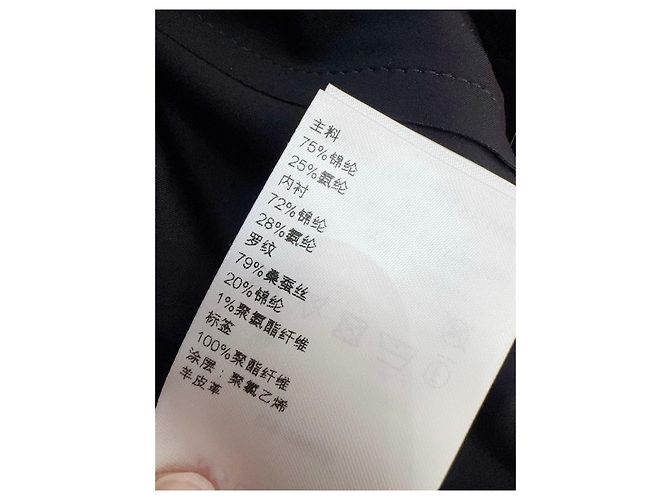 主料
75%锦纶
25%氨纶
内衬
72%锦纶
28%氨纶
罗纹
79%桑蚕丝
20%锦纶
1%聚氨酯纤维
标签
100%聚酯纤维
涂层：聚氯乙烯
羊皮革